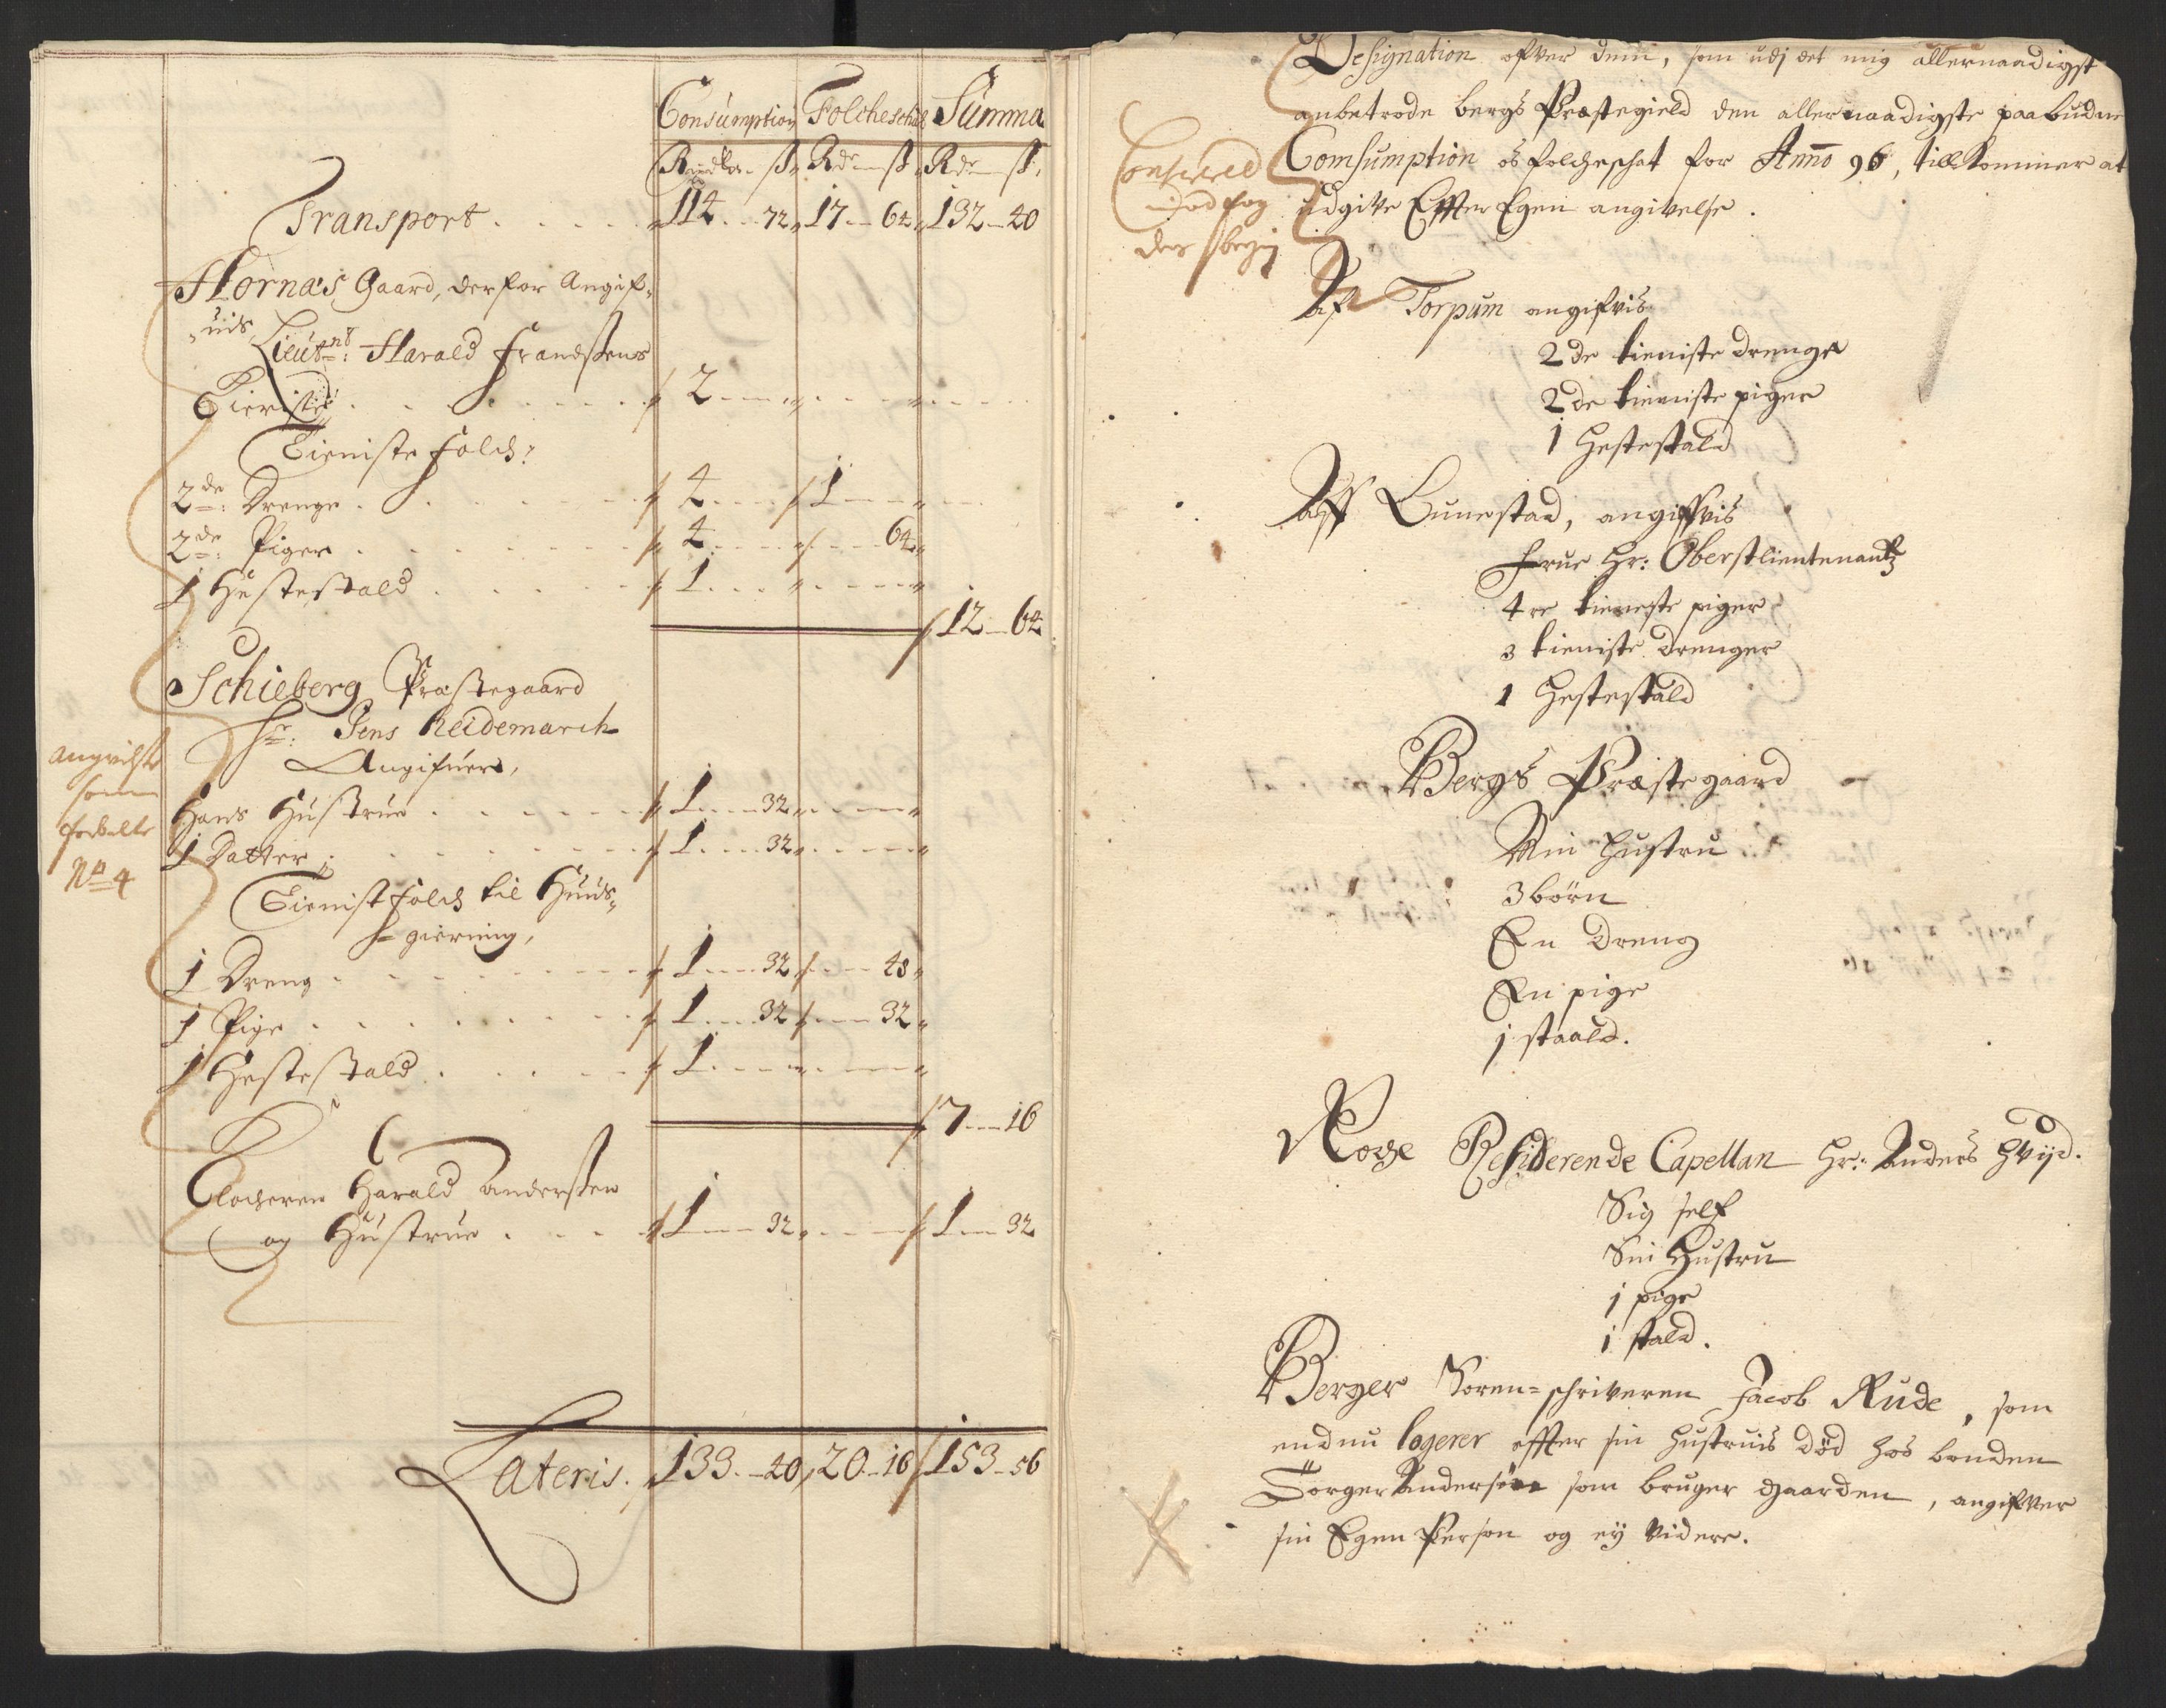 Consumption Folcheschat Summa
Rixdlr. ß. Rdr ß. Rdr ß.
Transport. 114 72 17 64 132 40
Hornæs Gaard, derfor Angif-
uis Lieutnt: Harald Frandsens
2
Tieniste Folch:
2de: Drenge 4 1
2de: Piger 4 64
1 Hestestald 1
12 64
Schieberg Præstegaard
Hr: Jens Reidemarch
Angifuer,
Hans Hustrue 1 32
1 Datter 1 32
Tienist folch til Huus-
gierning,
1 Dreng 1 32 48
1 Pige 1 32 32
1 Hestestald 1
7 16
Clocheren Harald Andersen
og Hustrue 1 32 1 32
Lateris. 133 40 20 16 153 56
Angivelse
som
No 4
Designation ofver dem, som udj det mig allernaadigst
anbetrode bergs Præstegield den allernaadigste paabudne
Comsumption oc folcheschat for Anno 96, tillkommer at
udgive Effter Egen angivelse.
Af Torpum angifvis
2de tieniste drenge
2de tieniste piger
1 Hestestald
Aff Bunestad, angiffvis
Frue Hr: Oberstlieutenantz
4re tieneste piger
3 tieniste drenger
1 Hestestald
Bergs Præstegaard
Min Hustru
3 börn
En dreng
En pige
1 staald.
Residerende Capellan Hr: Anders Hvijd.
Sig self
Sin Hustru
1 pige
1 stald.
Berger Soren-schriveren Jacob Rude, som
endnu logerer effter sin Hustruis död hos bonden
Torger Andersön som bruger gaarden, angifver
sin Egen Person og ey videre.